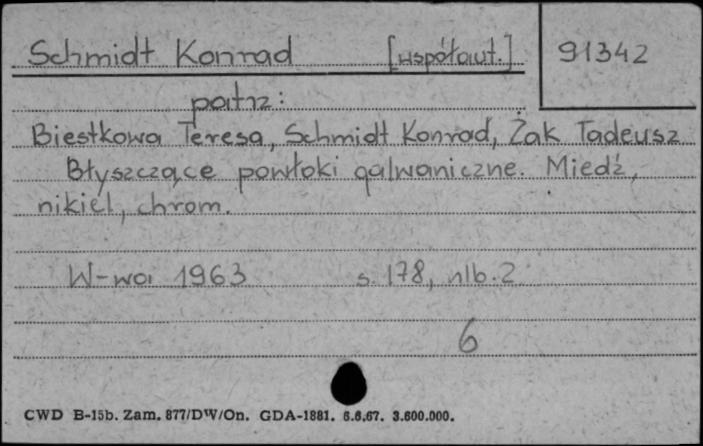 Schmidt Konrad [współaut.] 91342
patrz:
Biestkowa Teresa, Schmidt Konrad, Żak Tadeusz
Błyszczące powłoki galwaniczne. Miedź,
nikiel, chrom.
W-wa 1963 s. 178, nlb. 2
6
CWD B-15b. Zam. 877/DW/On. GDA-1881. 6.6.67. 3.600.000.